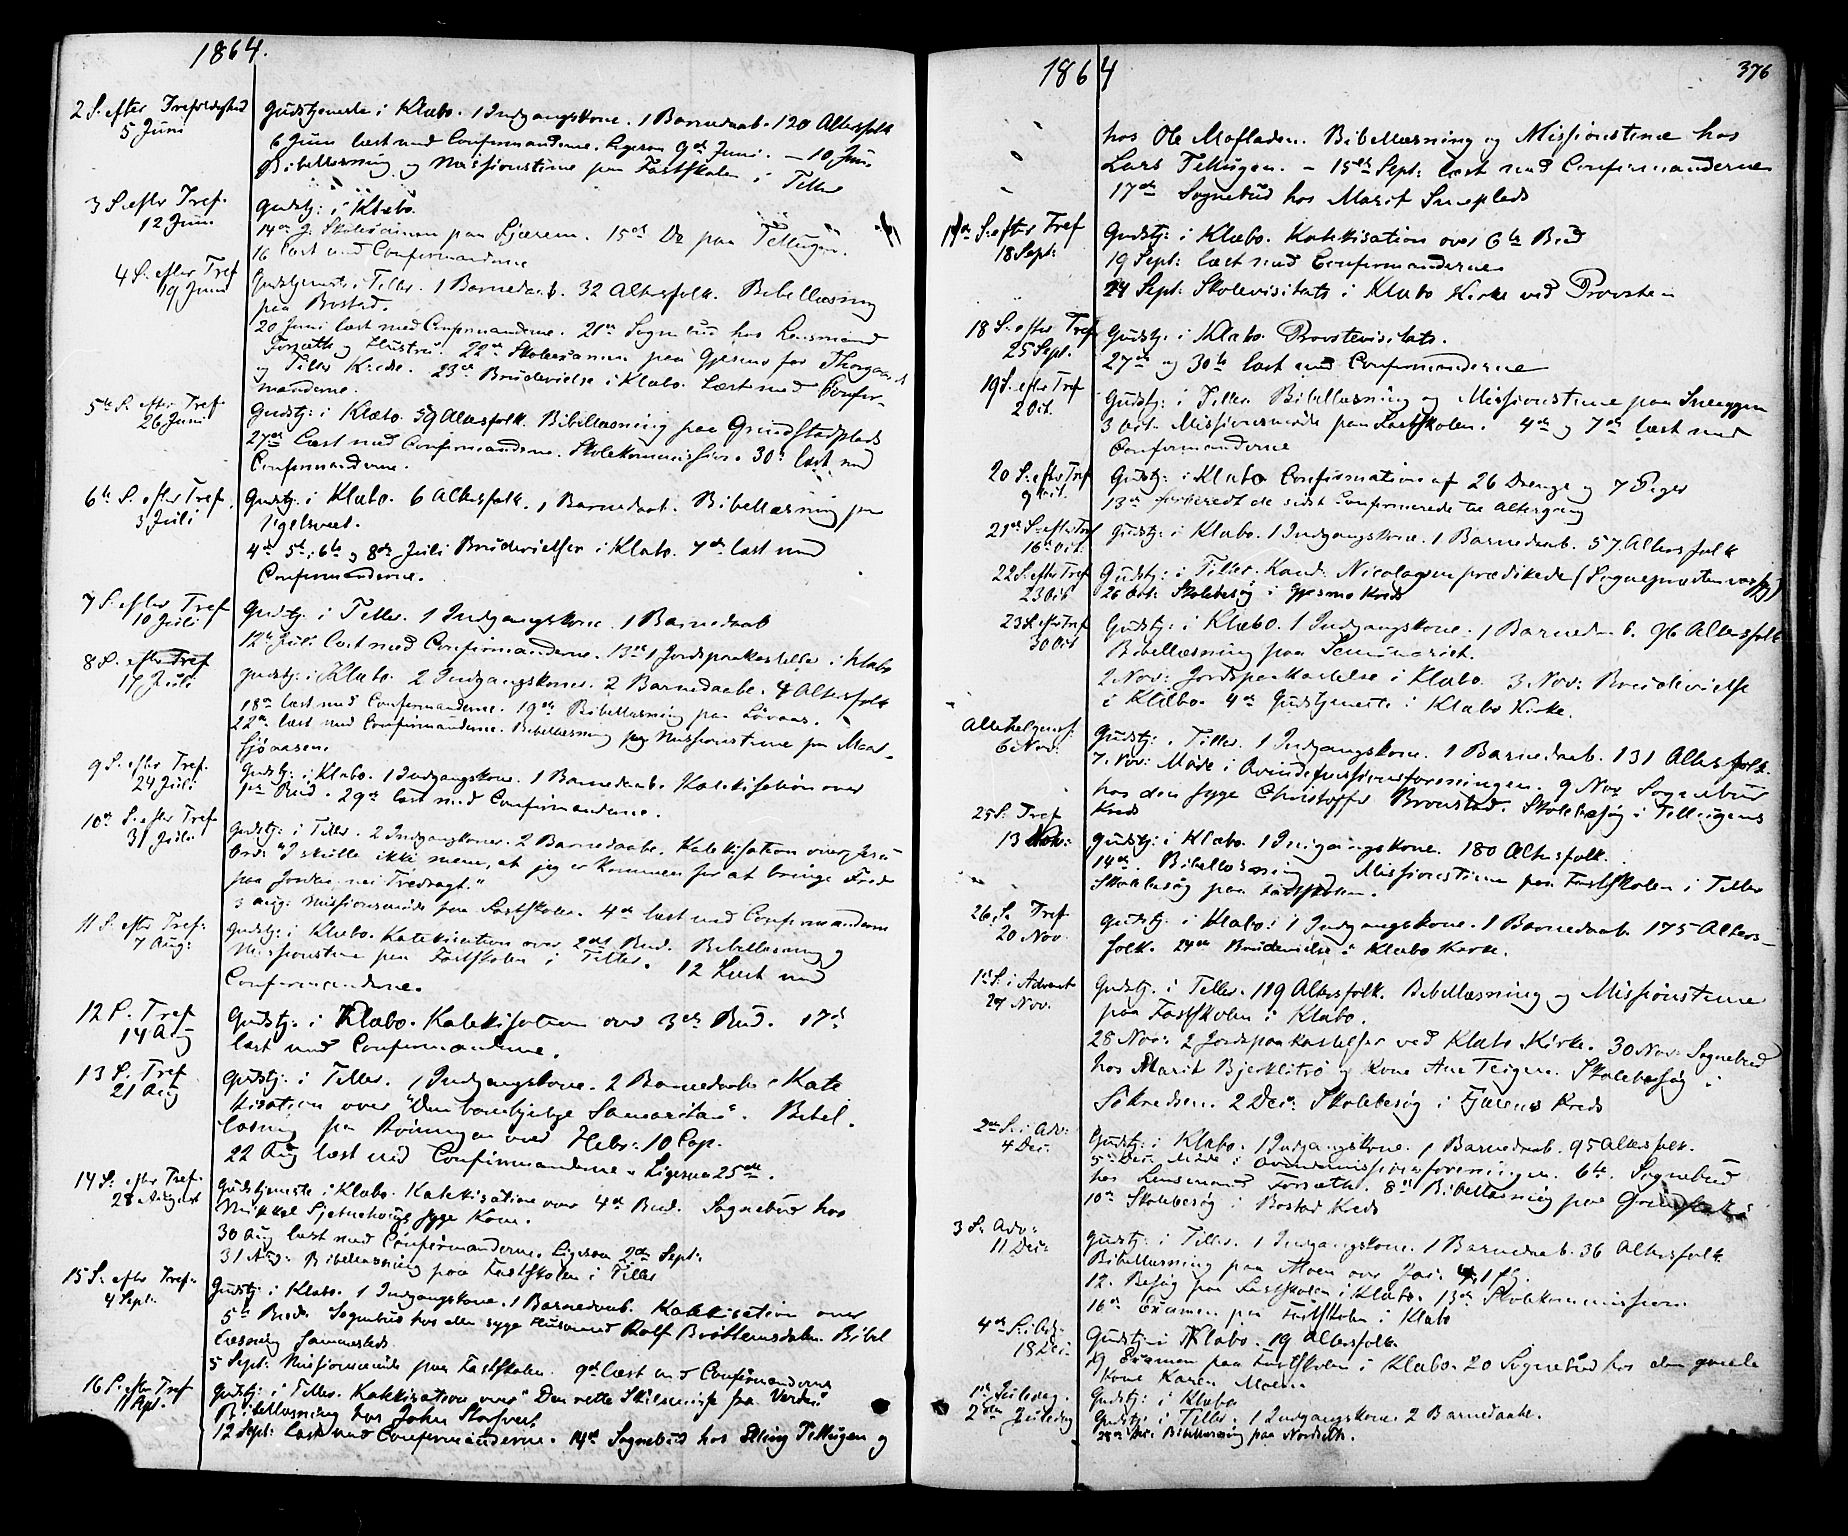 1864.
2 S. efter Trefoldighed
5 Juni
Gudstjeneste i Klæbo. 1 Indgangskone. 1 Barnedaab. 120 Altersfolk
6 Juni læst med Confirmanderne. Ligesaa 9de Juni. — 10 Juni
Bibellæsning og Missionstime paa Fastskolen i Tiller
3 S. efter Tref.
12 Juni
Gudstj: i Klæbo.
16 læst med Confirmanderne
4 S. efter Tref
19 Juni
Gudstjeneste i Tiller. 1 Barnedaab. 32 Altersfolk. Bibellæsning
paa Rostad.
20 Juni læst med Confirmanderne. 21de Sognebud hos Lensmand
Forsæth og Hustru. 22de Skoleexamen paa Gjesmo for Thorgaard
og Tiller Kredse. 23de Brudevielse i Klæbo. Læst med Confir-
manderne.
5te S. efter Tref.
26 Juni
Gudstj: i Klæbo. 59 Altersfolk. Bibellæsning paa Grindstadplads
27de Læst med Confirmanderne. Skolekommission. 30: læst med
Confirmanderne.
6te S. efter Tref.
3 Juli
Gudstj. i Klæbo. 6 Altersfolk. 1 Barnedaab. Bibellæsning paa
4de 5te, 6te og 8de Juli Brudevielser i Klæbo. 7de læst med
Confirmanderne.
7 S. efter Tref
10 Juli
Gudstj. i Tiller. 1 Indgangskone. 1 Barnedaab
12te Juli læst med Confirmanderne. 13de 1 Jordpaakastelse i Klæbo
8 S. efter Tref
17 Juli
Gudstj: i Klæbo. 2 Indgangskoner. 2 Barnedaabe. 4 Altersfolk
18de læst med Confirmanderne. 19de Bibellæsning paa Løvaas.
22de læst med Confirmanderne. Bibellæsning og Missionstime paa
Sjøaasen.
9 S. efter Tref.
24 Juli
Gudstj: i Klæbo. 1 Indgangskone. 1 Barnedaab. Katekisation over
1ste Bud. 29de læst med Confirmanderne.
10de S. efter Tref
31 Juli
Gudstj: i Tiller. 2 Indgangskoner. 2 Barnedaabe. Katekisation over Jesu
Ord: "I skulle ikke mene, at jeg er kommen for at bringe Fred
paa Jorden, nei Tvedragt."
3 Aug: Missionsmøde paa Fastskolen. 4de læst med Confirmanderne
11 S. efter Tref:
7 Aug:
Gudstj: i Klæbo. Katekisation over 2det Bud. Bibellæsning og
Missionstime paa Fastskolen i Tiller. 12 Læst med
Confirmanderne.
12 S. Tref
14 Aug
Gudstj: i Klæbo. Katekisation over 3die Bud. 17de
læst med Confirmanderne.
13 S. Tref
21 Aug
Gudstj: i Tiller. 1 Indgangskone. 2 Barnedaabe. Kate
kisation over "Den barmhjertige Samaritan". Bibel-
læsning paa Rønningen over Hebr: 10 Cap.
22 Aug læst med Confirmanderne. Ligesaa 25de.
14 S. efter Tref.
28 August
Gudstjeneste i Klæbo. Katekisation over 4de Bud. Sognebud hos
30 Aug læst med Confirmanderne. Ligesaa 2den Sept:
31 Aug: Bibellæsning paa Fastskolen i Tiller
15 S. efter Tref:
4 Sept:
Gudstj: i Klæbo. 1 Indgangskone. 1 Barnedaab. Katekisation over
5te Bud. Sognebud hos den syge Huusmand Rolf Brøttemsdalen. Bibel
læsning sammesteds.
5 Sept: Missionsmøde paa Fastskolen. 9de læst med Confirmanderne
16 S. efter Tref
11 Sept.
Gudstj: i Tiller. Katekisation over "Den rette Skilsmisse fra Verden"
Bibellæsning hos John Storsvet
12 Sept: læst med Confirmanderne. 14de Sognebud hos Elling Tellugen og
1864
376
hos Ole Mofladen. Bibellæsning og Missionstime hos
Lars Tellugen. – 15de Sept: læst med Confirmanderne
17de Sognebud hos Marit Sneeplads
17de S. efter Tref
18 Sept:
Gudstj: i Klæbo. Katekisation over 6te Bud
19 Sept: læst med Confirmanderne
24 Sept: Skolevisitats i Klæbo Kirke ved Provsten
18 S. efter Tref
25 Sept.
Gudstj: i Klæbo. Provstevisitats.
27de og 30te læst med Confirmanderne
19 S. efter Tref
2 Oct.
Gudstj: i Tiller. Bibellæsning og Missionstime paa
3 Oct. Missionsmøde paa Fastskolen. 4de og 7de læst med
Confirmanderne
20 S. efter Tref
9 Oct.
Gudstj: i Klæbo Confirmation af 26 Drenge og 7 Piger
13de forberedt de sidst Confirmerede til Altergang
21de S. efter Tref
16de Oct.
Gudstj: i Klæbo. 1 Indgangskone. 1 Barnedaab. 57 Altersfolk
22 S. efter Tref
23 Oct
Gudstj: i Tiller. Kand: Nicolaysen prædikede (Sognepresten var syg)
26 Oct: Skolebesøg i Gjesmo Kreds
23 S. efter Tref
30 Oct
Gudstj: i Klæbo. 1 Indgangskone. 1 Barnedaab. 96 Altersfolk
Bibellæsning paa Seminariet.
2 Nov: Jordpaakastelse i Klæbo. 3 Nov: Brudevielse
i Klæbo. 4de Gudstjeneste i Klæbo Kirke.
Allehelgensf:
6 Nov:
Gudstj: i Tiller. 1 Indgangskone. 1 Barnedaab. 131 Altersfolk.
7. Nov: Møde i Qvindemissionsforeningen. 9 Nov Sognebud
hos den syge Christoffer Brønstad. Skolebesøg i Tellugens
Kreds
25 S. Tref
13 Nov:
Gudstj: i Klæbo. 1 Indgangskone. 180 Altersfolk.
14de. Bibellæsning og Missionstime paa Fastskolen i Tiller
Skolebesøg paa Fastskolen.
26 S. Tref
20 Nov
Gudstj: i Klæbo: 1 Indgangskone. 1 Barnedaab. 175 Alters-
folk. 24de Brudevielse i Klæbo Kirke.
1ste S. i Advent
27 Nov.
Gudstj. i Tiller. 119 Altersfolk. Bibellæsning og Missionstime
paa Fastskolen i Klæbo.
28 Nov: 2 Jordpaakastelser ved Klæbo Kirke. 30 Nov: Sognebud
hos Marit Bjerklitrø og Kone Ane Teigen. Skolebesøg i
2 Dec: Skolebesøg i Fjærems Kreds
2den S. i Adv:
4 Dec:
Gudstj: i Klæbo. 1 Indgangskone. 1 Barnedaab. 95 Altersfolk.
5te Dec: Møde i Qvindemissionsforeningen. 6te. Sognebud
hos Lensmand Forsæth. 8de Bibellæsning paa
10de Skolebesøg i Rostad Kreds
3 S. Adv:
11 Dec:
Gudstj: i Tiller. 1 Indgangskone. 1 Barnedaab. 36 Altersfolk
Bibellæsning paa Moen over
12. Besøg paa Fastskolen i Klæbo. 13de Skolekommission
16de Examen paa Fastskolen i Klæbo
4de S. i Adv:
18 Dec:
Gudstj: i Klæbo. 19 Altersfolk.
19 Examen paa Fastskolen i Klæbo. 20 Sognebud hos den gamle
Kone Karen Moen.
1ste Juledag.
Gudstj: i Klæbo
2den Juledag
Gudstj: i Tiller. 1 Indgangskone. 2 Barnedaabe.
28de Dec: Bibellæsning paa Nordseth.